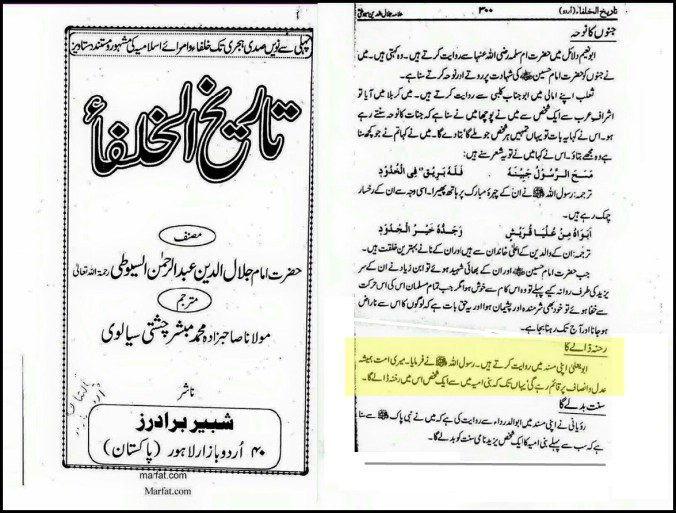 پہلی سے نویں صدی ہجری تک خلفاء و امرائے اسلامیہ کی مشہور و مستند دستاویز
تاریخ الخلفاء
مصنف
حضرت امام جلال الدین عبدالرحمٰن السیوطی رحمۃ اللہ تعالیٰ
مترجم
مولانا صاحبزادہ محمد مبشر چشتی سیالوی
ناشر
شبیر برادرز
۴۰ اُردو بازار لاہور (پاکستان)
marfat.com
Marfat.com
تاریخ الخلفاء (اُردو)
۳۰۰
علامہ جلال الدین سیوطی
جنوں کا نوحہ
ابونعیم دلائل میں حضرت ام سلمہ رضی اللہ عنہا سے روایت کرتے ہیں۔ وہ کہتی ہیں۔ میں
نے جنوں کو حضرت امام حسین کی شہادت پر روتے اور نوحہ کرتے سنا ہے۔
ثعلب اپنے امالی میں ابوجناب کلبی سے روایت کرتے ہیں۔ میں کربلا میں آیا تو
اشراف عرب سے ایک شخص سے میں نے پوچھا میں نے سنا ہے کہ جنات کا نوحہ سنتے رہے
ہو۔ اس نے کہا یہ بات تو یہاں تمہیں ہر شخص جو ملے گا بتا دے گا۔ میں نے کہا تم نے جو کچھ سنا
ہے وہ مجھے بتاؤ۔ اس نے کہا میں نے تو یہ شعر سنے ہیں:
مَسَحَ الرَّسُوْلُ جَبِيْنَهُ فَلَهُ بَرِيْقٌ فِى الْخُدُوْدِ
ترجمہ: رسول اللہ ﷺ نے ان کے چہرۂ مبارک پر ہاتھ پھیرا۔ اسی وجہ سے ان کے رخسار
چمک رہے ہیں۔
اَبَوَاهُ مِنْ عُلْيَا قُرَيْشٍ وَجَدُّهُ خَيْرُ الْجُدُوْدِ
ترجمہ: ان کے والدین کے اعلیٰ خاندان سے ہیں اور ان کے نانے بہترین خلقت ہیں۔
جب حضرت امام حسین اور ان کے بھائی شہید ہوئے تو ابن زیاد نے ان کے سر
یزید کی طرف روانہ کیے پہلے تو وہ اس کام سے خوش ہوا مگر جب تمام مسلمان اس کی اس حرکت
سے خفا ہوئے تو خود بھی شرمندہ اور پشیمان ہوا اور یہ حق بات ہے کہ لوگوں کا اس سے ناراض
ہو جانا اور آج تک رہنا بجا ہے۔
رخنہ ڈالے گا
ابویعلیٰ اپنی مسند میں روایت کرتے ہیں۔ رسول اللہ ﷺ نے فرمایا۔ میری امت ہمیشہ
عدل و انصاف پر قائم رہے گی یہاں تک کہ بنی امیہ میں سے ایک شخص اس میں رخنہ ڈالے گا۔
سنت بدلے گا
رؤیانی نے اپنی مسند میں ابوالدرداء سے روایت کی ہے کہ میں نے نبی پاک ﷺ سے سنا
ہے کہ سب سے پہلے بنی امیہ کا ایک شخص یزید نامی میری سنت کو بدلے گا۔